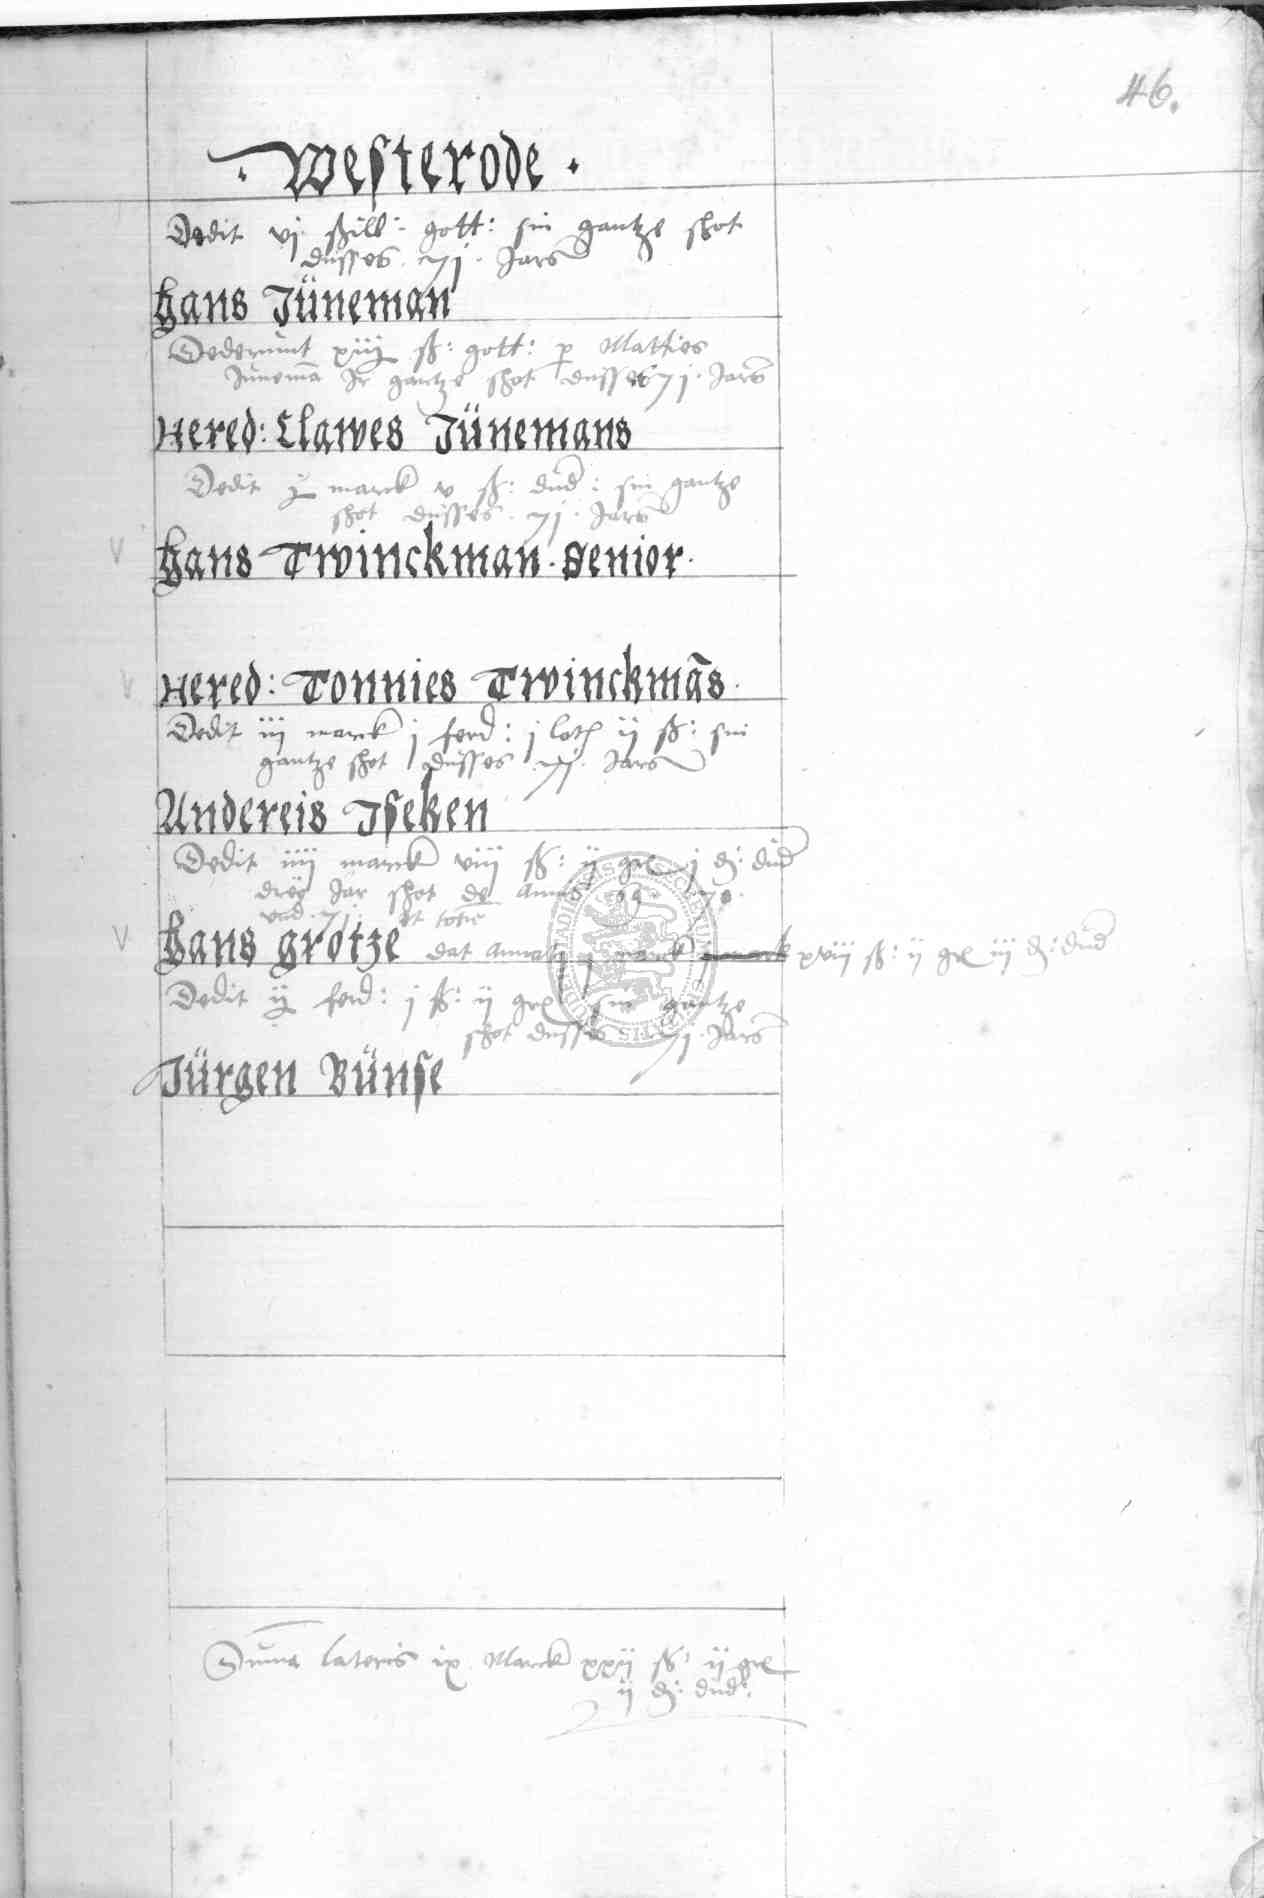 46.
· Westerode ·
Dedit vj ßill: gott: sin gantze shot
dusses · 71 · Jars
Hans Jüneman
Dederunt xiij ß: gott: p Matties
Junemā Jr gantze shot dusses 71 · Jars
Hered: Clawes Jünemans
Dedit marck v ß: dud: sin gantze
shot dusses · 71 · Jars
V Hans Twinckman · Senior ·
V Hered: Tonnies Twinckmās
Dedit iij marck j ferd: j loth ij ß: sin
gantze shot dusses 71 · Jars
Andereis Iseken
Dedit iiij marck viij ß: ij gr j d: dud
drey Jar shot de Anno 69 · 70 ·
vnd · 71 · et
V Hans grotze dat marck xviij ß: ij gr iij d: dud
Dedit ferd: j ß: ij gr sin gantze
shot dusses 71 · Jars
Jürgen Bünse
Suma lateris ix Marck xxij ß: ij gr
ij d: dud: